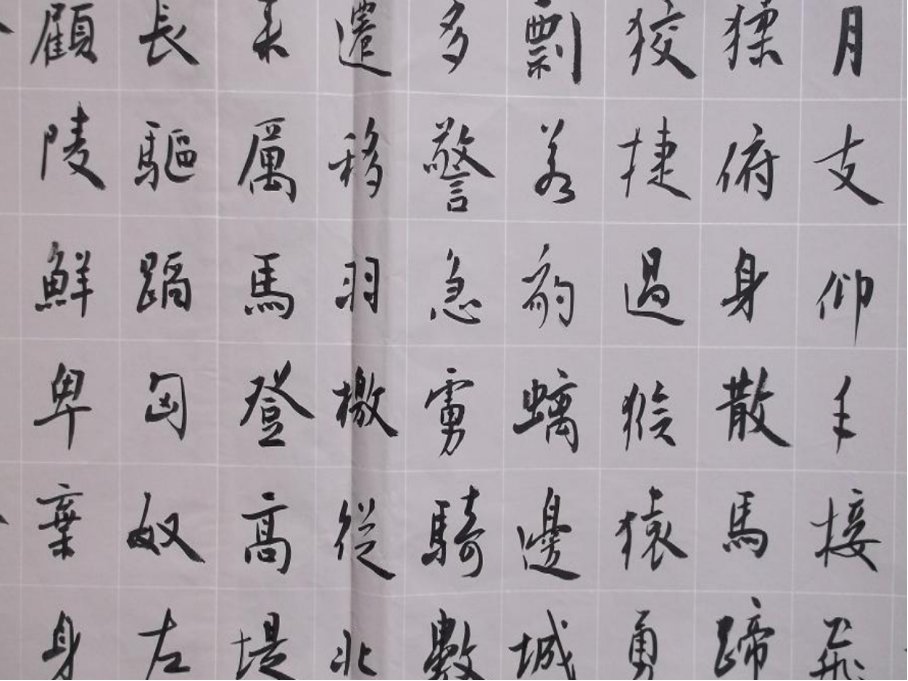 月支仰手接飛
猱俯身散馬蹄
狡捷過猴猿勇
剽若豹螭邊城
多警急虜騎數
遷移羽檄從北
来厲馬登高堤
長驅蹈匈奴左
顧陵鮮卑棄身